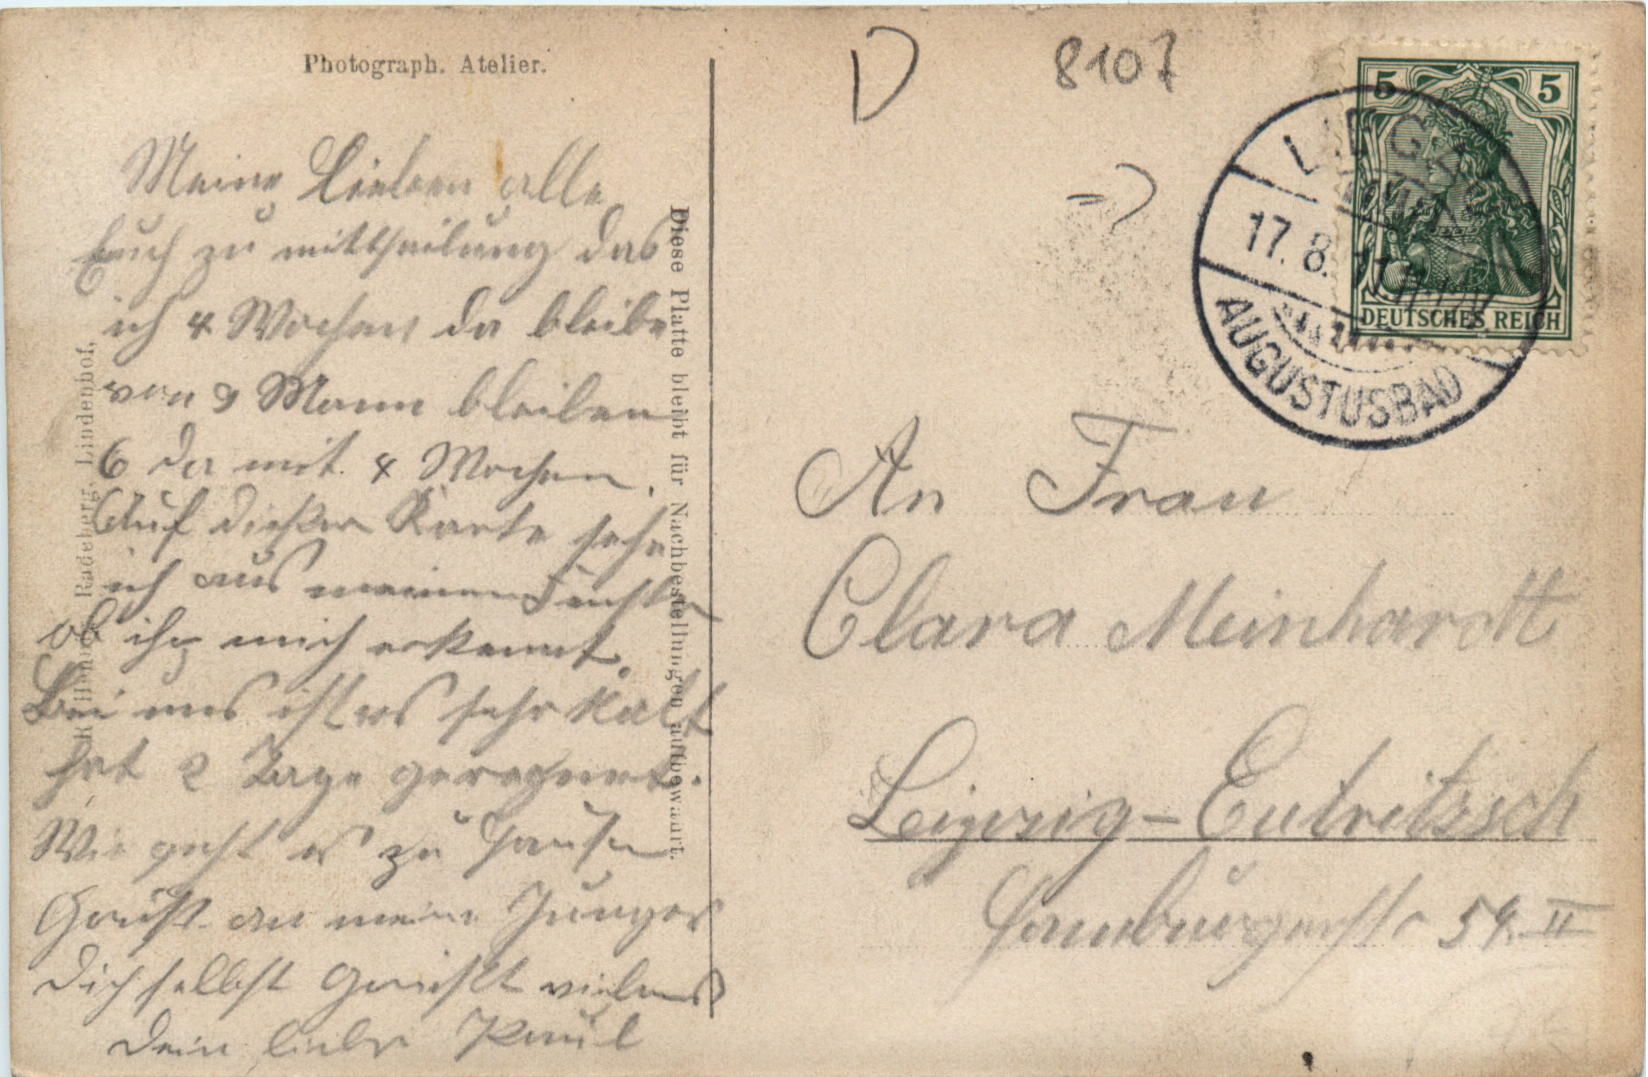 Photograph. Atelier.
Meine Lieben alle
Euch zu mittheilung das
ich 4 Wochen da bleibe
von 9 Mann bleiben
6 da mit 4 Wochen.
Auf dießer Karte sehe
ich aus meinen Fenster
ob ihr mich erkennt.
Bei uns ist es sehr kalt
hat 2 Tage geregnet.
Wie geht es zu Hause
Gruß an meine Junges
Dich selbst Grüßt vielmals
Dein lieber Paul
Radeberg, Lindenhof,
Diese Platte bleibt für Nachbestellungen aufbewahrt.
D 8107
5 5
DEUTSCHES REICH
17. 8. 11
AUGUSTUSBAD
An Frau
Clara Meinhardt
Leipzig-Eutritzsch
Hamburgerstr 54. II